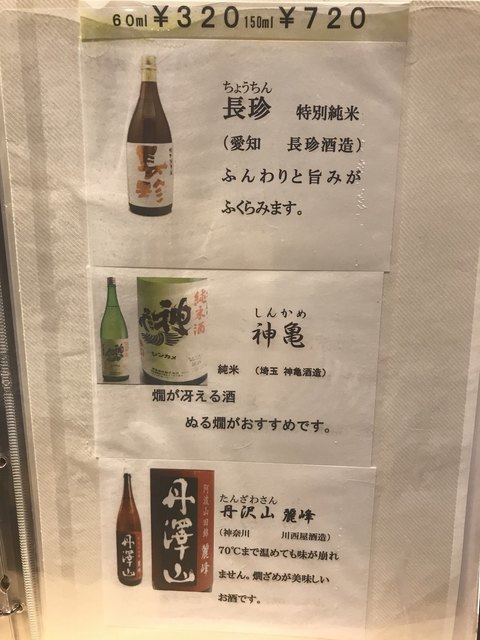 60ml ¥320 150ml ¥720
ちょうちん
長珍 特別純米
(愛知 長珍酒造)
ふんわりと旨みが
ふくらみます。
長珍
しんかめ
神亀
純米 (埼玉 神亀酒造)
燗が冴える酒
ぬる燗がおすすめです。
純米酒
神亀
シンカメ
たんざわさん
丹沢山 麗峰
(神奈川 川西屋酒造)
70℃まで温めても味が崩れ
ません。燗ざめが美味しい
お酒です。
丹澤山
阿波山田錦 麗峰
丹澤山